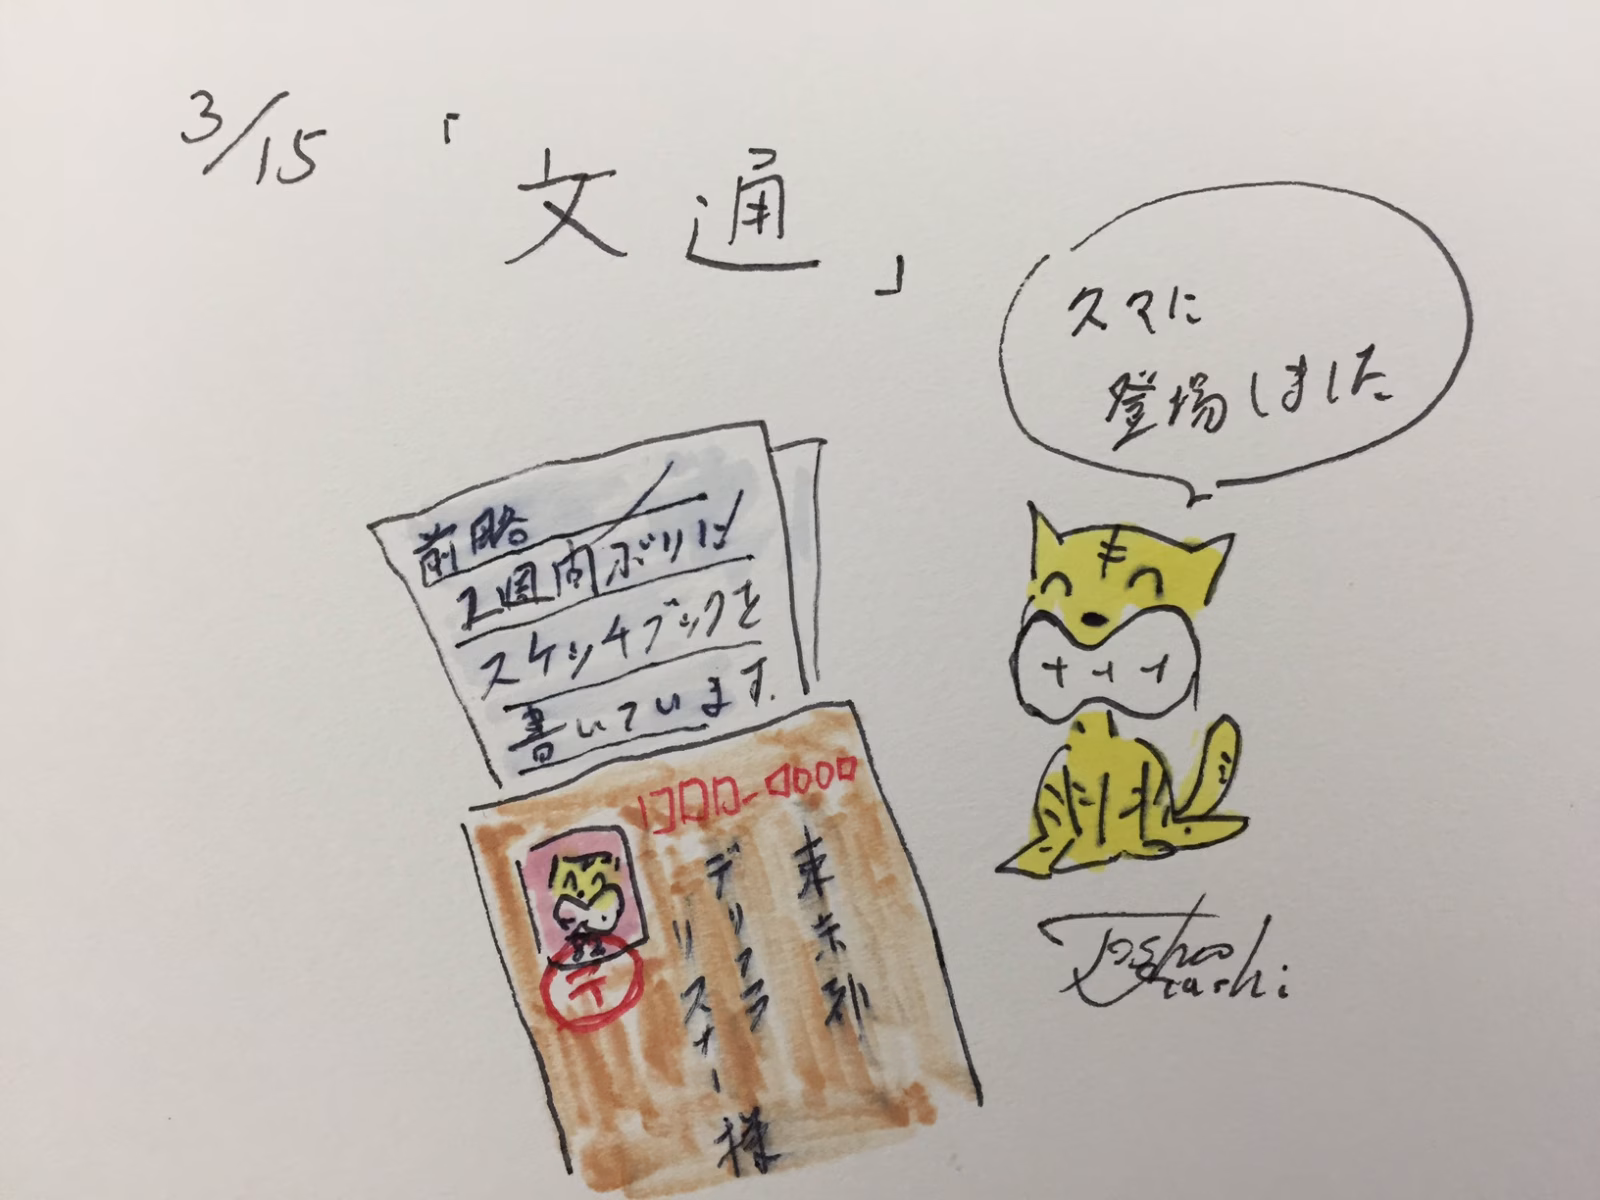 3/15 「文通」
久々に
登場しました
前略
2週間ぶりに
スケッチブックを
書いています。
〒
東京都
デリフラ
リスナー様